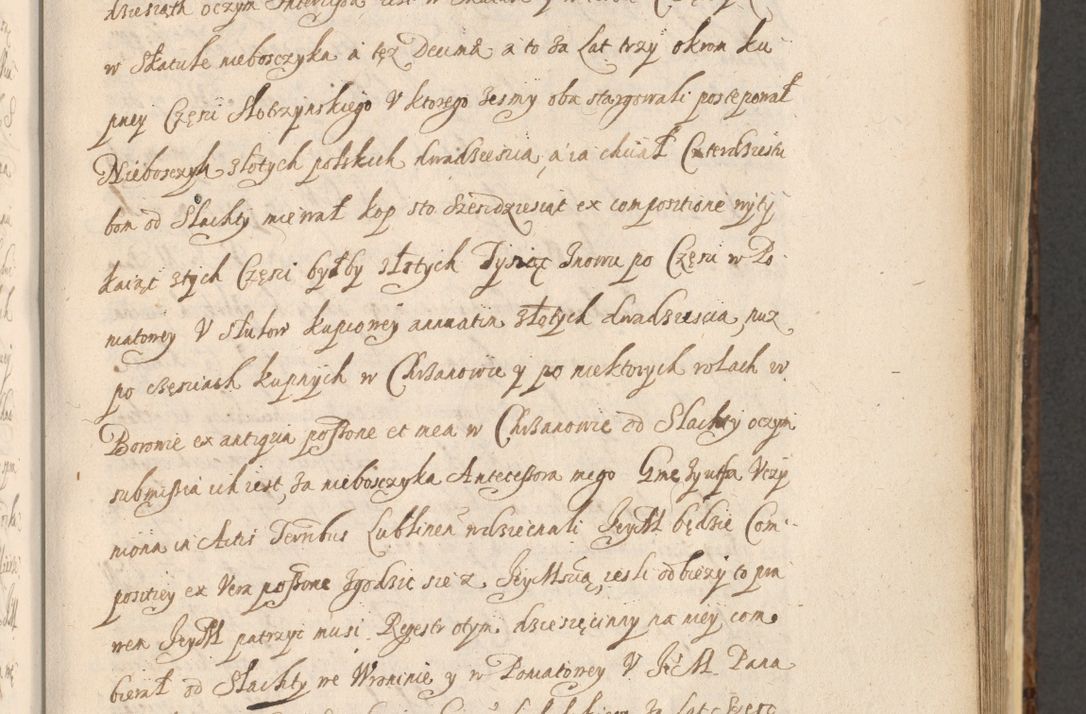 dziesiąth oczym Intercyza iest w
w Skatule nieboszczyka a tęz Decimæ a to za Lat trzy okrom ku
pney Częsci Słotrzynskiego V ktorego zesmy oba stargowali postępował
Nieboszczyk złotych polskich dwadziescia, a ia chciał Czterdziestu
bom od Slachty mierał kop sto szescdziesiąt ex compositione wyty
kaiąc z tych Częsci byłby złotych Tysiąc Znowu po Częsci w Po
niatowey V Slutow kupioney annuatim złotych dwadziescia, puz
po częsciach kupnych w Chrzanowie y po niektorych rolach w
Boromie ex antiqua possione et mea w Chrzanowie od Slachty oczym
submissia ich iest, za nieboszczyka Antecessora mego Gme Zyutsa Vczy
niona in Actis Terribus Lublinen wdzięcznali JeyM będzie Com
positiey ex Vera possione zgodzic się z JeyMscią, iesli odbiezy to pra
wem JeyM patrzyc musi Regestr otym dziesięcinny na niey com
bierał od Slachty we Wroninie y w Poniatowey V Je M Pana